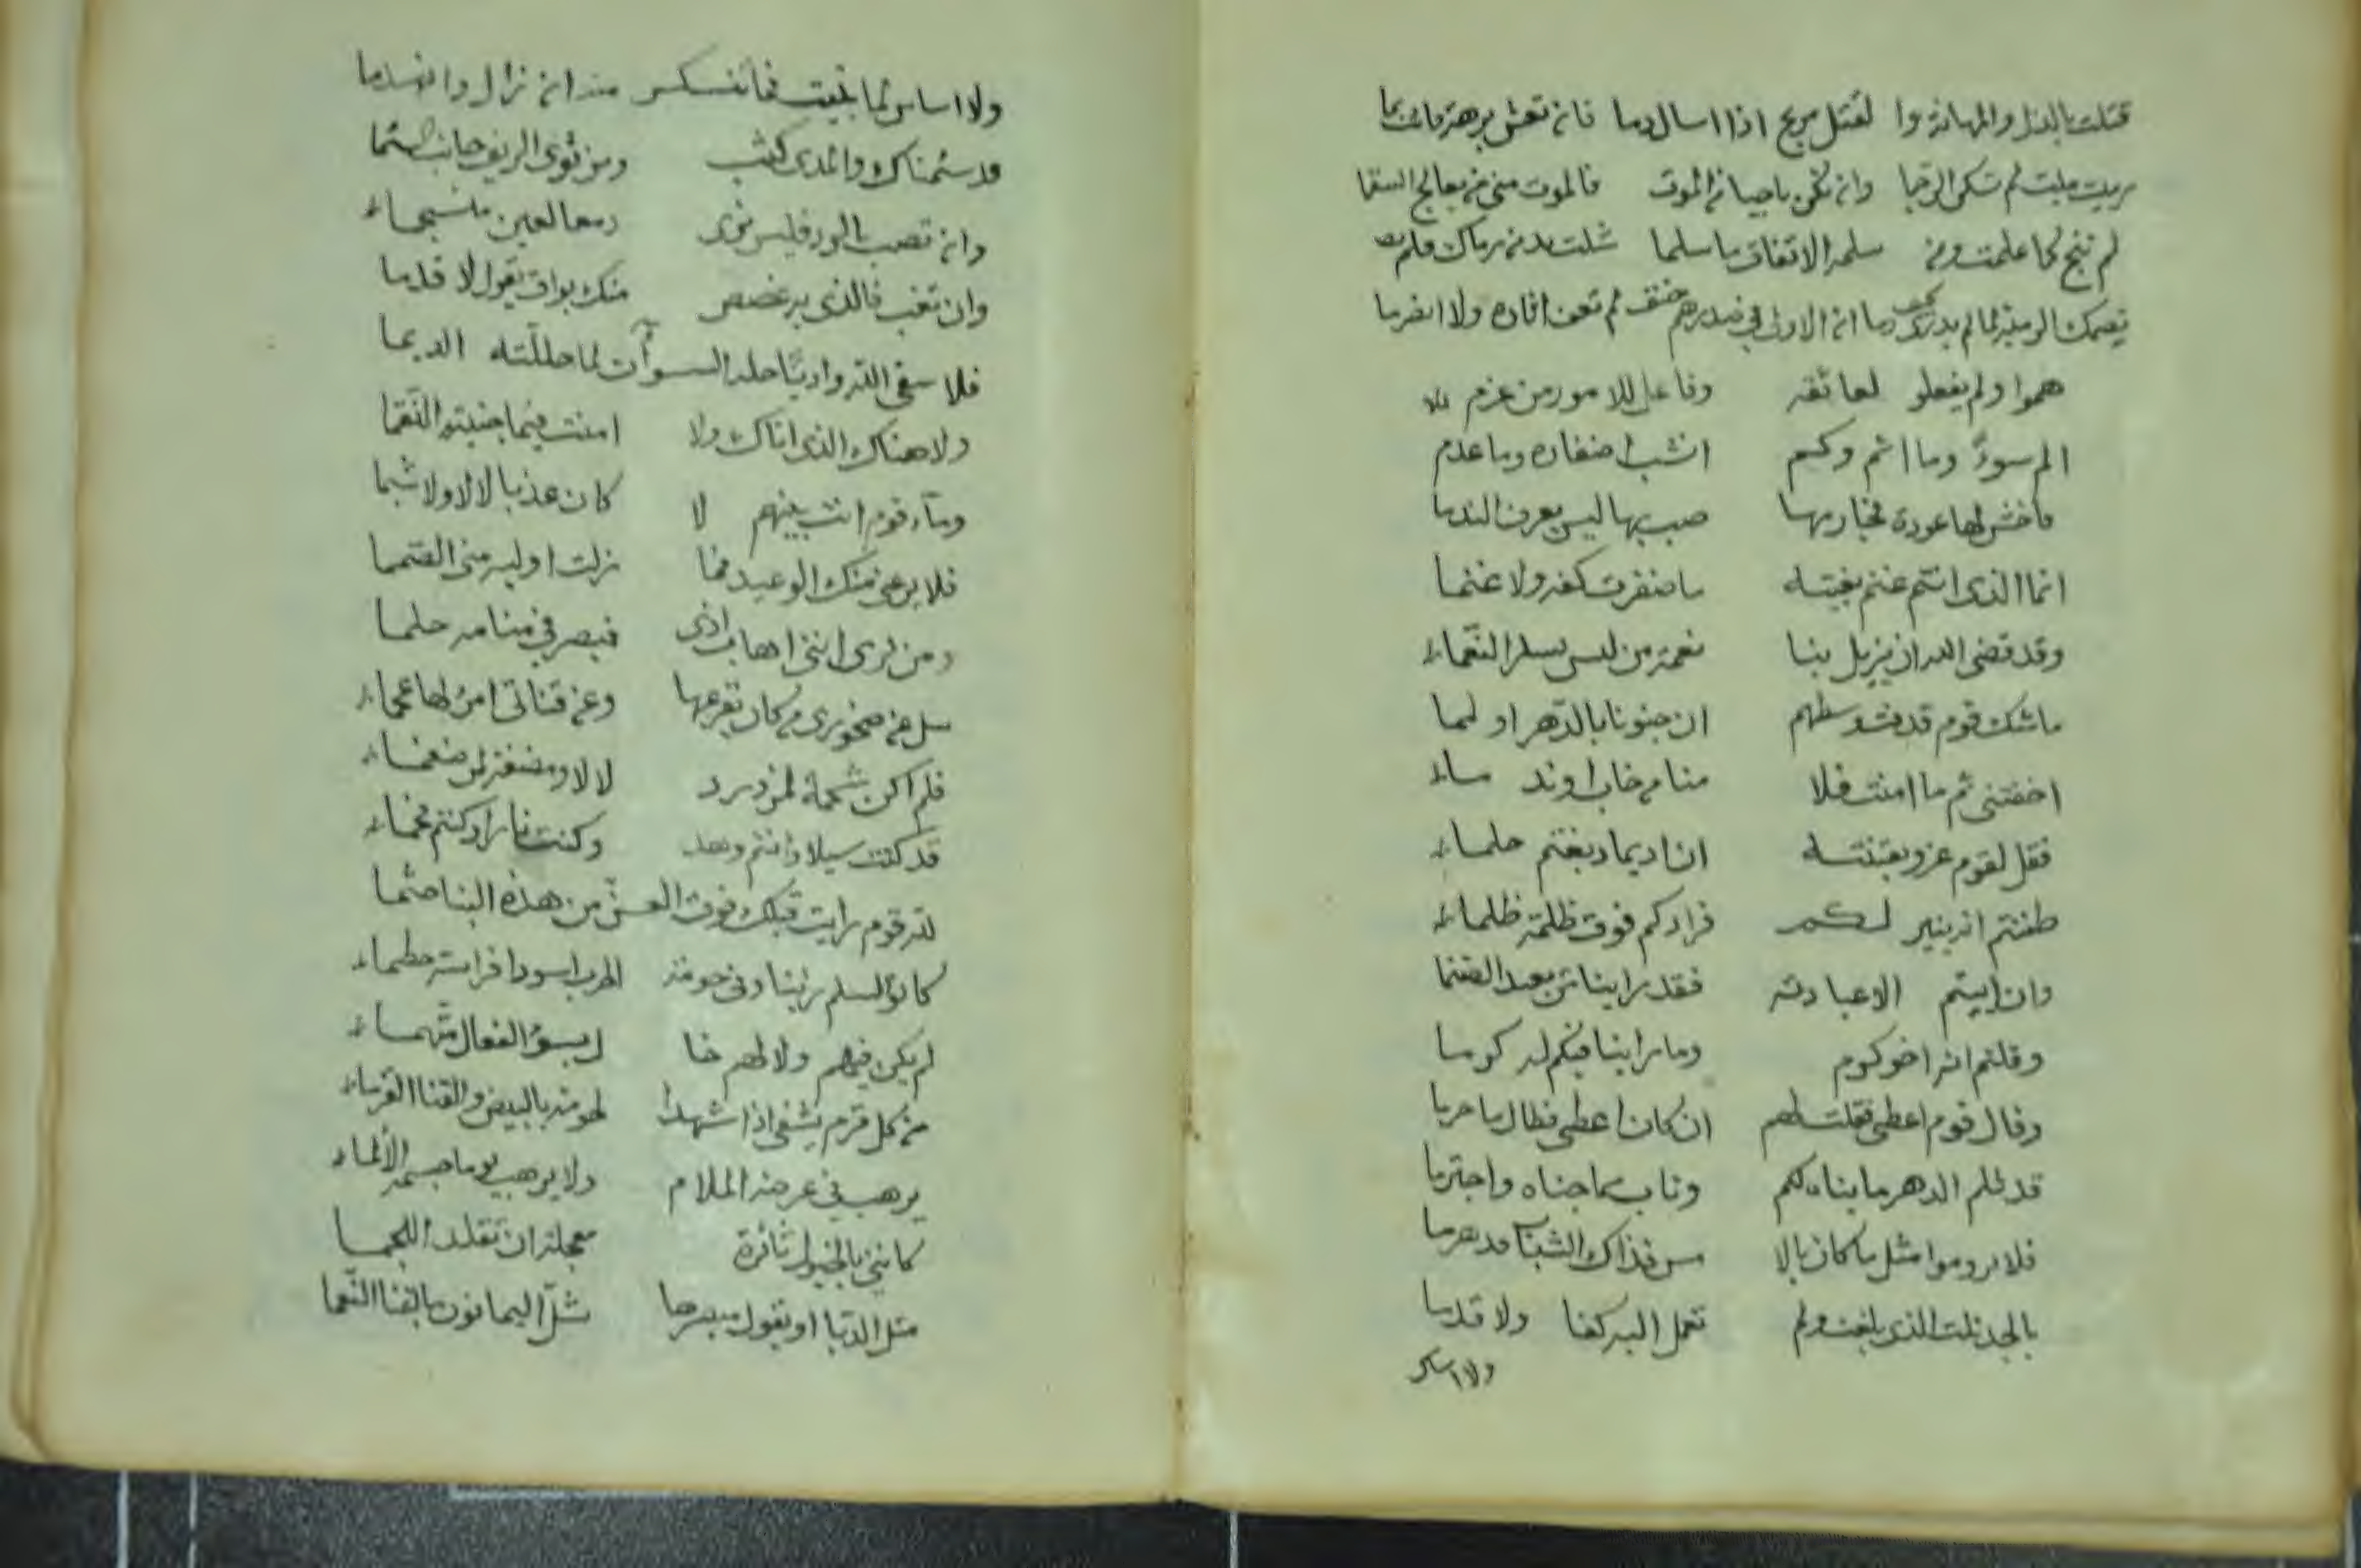 قتلت بالذل والمهانة وا لقتل مريح اذا اسال دما فان تعش برهة فانت بما
ميت فلم تكن وان تكن ناجيا من الموت فالموت منى من يعالج السقما
لم تنج لما علمت ومن سلمه الاتفاق ما سلما شلت يد من رماك ولم
تصمك الرمية لما لم دما ان الاولى في صدورهم حنق لم تعف اثاره ولا انصرما
هموا ولم يفعلو لعائقه وفاعل للامور من عزم
الم سوءً وما اثم وكم انشب اضفاره وما عدم
فاخش لها عودة صب بها ليس يعرف الندما
انما الذى انتم غنم بغيته ما ضفرت كفه ولا غنما
وقد قضى الله ان يزيل بنا نعمة من ليس يسلم النعماء
ما شك قوم قد وسطهم ان جنونا بالدهر او لمما
اخفتنى ثم ما امنت فلا منا من خاب او ند ماء
فقل لقوم عزو بفتنته ان اديما دبغتم حلماء
ظننتم انه ينير لكم فزادكم فوق ظلمة ظلماء
وان ابيتم الا عبادته فقد راينا من يعبد الصنما
وقلتم انه اخو كرم وما راينا فيكم له كرما
وقال قوم اعطى فقلت لهم ان كان اعطى فطال ما حرما
قد ظلم الدهر ما بناه لكم وتاب مما جناه واجترما
فلا تروموا مثل ما كان بالا مس فذاك الشباب قد هرما
بالجد نلت الذى بلغت ولم تعمل اليه كفا ولا قدما
ولا اساس
ولا اساس لما بنيت فما نفسكر منه ان زال وانهدما
قد سئمناك والمدى كثب ومن ثوى الريف جانب السئما
وان تصب بالورد فليس ترى دمعا لعين منسجماء
وان تغب فالذى به غصص منك بواق يقول لا قدما
فلا سقى الله واديا حله السوآت لما حللته الديما
ولا هناك الذى اتاك ولا امنت فيما جنيته النقما
وماء قوم انت بينهم لا كان عذبا لا لا ولا شبما
فلا يرعنى منك الوعيد فما زلت اوليه منى الصمما
ومن يرى اننى اهاب اذى فيبصر في منامه حلما
سل عن صخورى من كان يقرعها وعن قناتى امرؤ لها عجماء
فلم اكن شحمة لمزدرد لا لا ومضغة لمن ضغماء
قد كنت سيلا وانتم وهد وكنت نارا وكنتم فحماء
لله قوم رايت قبلك فوق العـز من هذه البنا جثما
كانو السلم زينا وفى حومة الحرب اسودا فراسة حطماء
لم يكن فيهم ولا لهم خنا لم يسؤ الفعال متهماء
من كل قرم يشفى اذا شهدا لحومة بالبيض والقنا القرماء
يرهب في عرضه الملام ولا يرهب يوما جسمه الألماء
كاننى بالخيول ثائرة معجلة ان تقلد اللجما
مثل الدبا او يقول مبصرها شل اليمانون بالقنا النعما